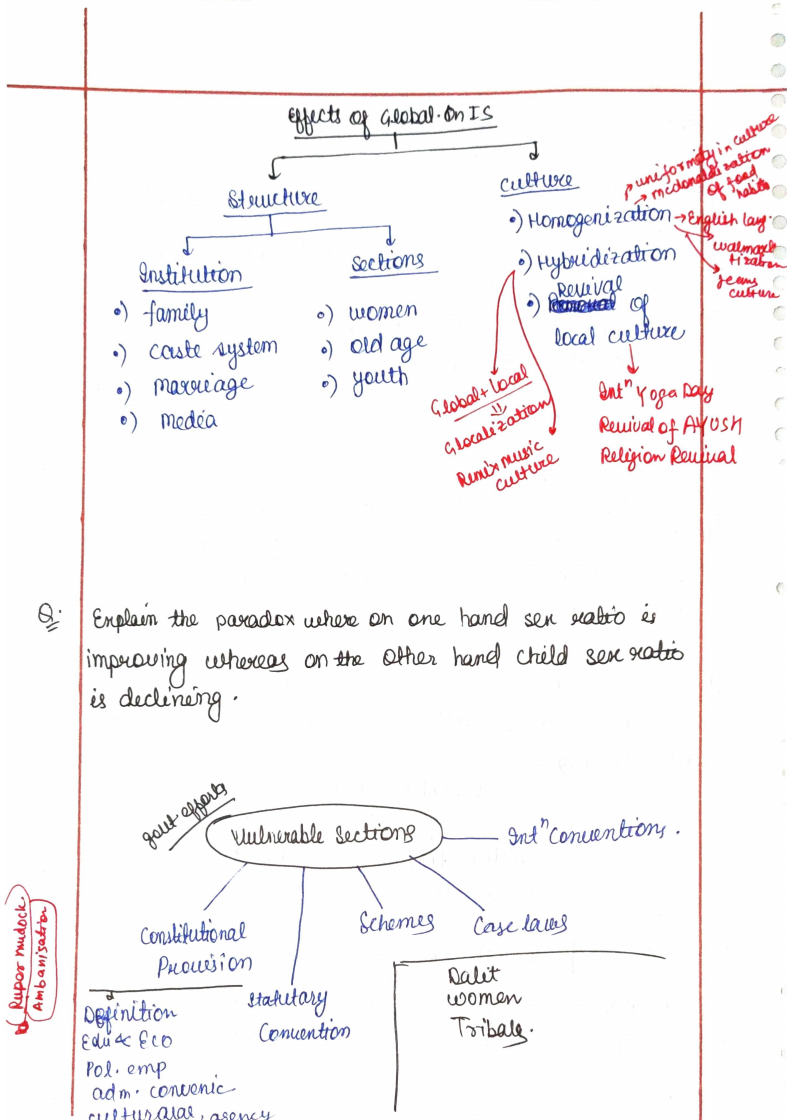 Effects of Global. On IS
Structure
Culture
Institution
•) family
•) caste system
•) marriage
•) media
Sections
•) women
•) old age
•) youth
•) Homogenization
uniformity in culture
mcdonaldization
of food
habits
English lang.
walmart
tization
Jeans
culture
•) Hybridization
Global + Local
=
Glocalization
Remix music
culture
•) Revival of
local culture
Intⁿ Yoga Day
Revival of AYUSH
Religion Revival
Q: Explain the paradox where on one hand sex ratio is
improving whereas on the other hand child sex ratio
is declining.
govt efforts
Vulnerable Sections
Intⁿ Conventions.
Constitutional
Provision
Statutary
Convention
Schemes
Case laws
Definition
Edu & Eco
Pol. emp
adm. convenic
agency
Dalit
women
Tribals.
Rupar mudock
Ambanisation